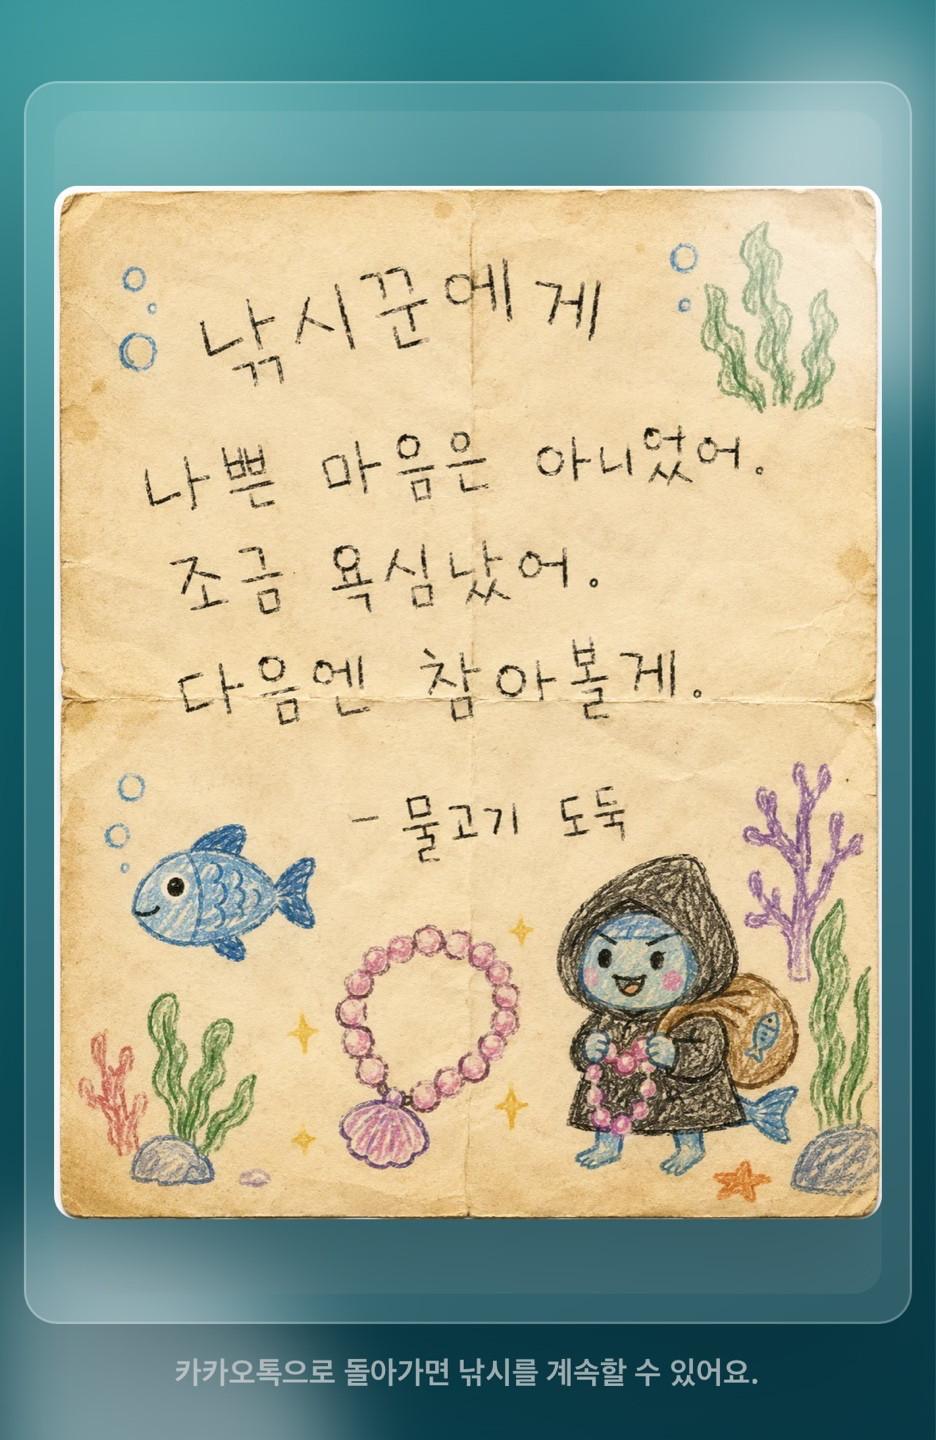 낚시꾼에게
나쁜 마음은 아니었어.
조금 욕심났어.
다음엔 참아볼게.
- 물고기 도둑
카카오톡으로 돌아가면 낚시를 계속할 수 있어요.